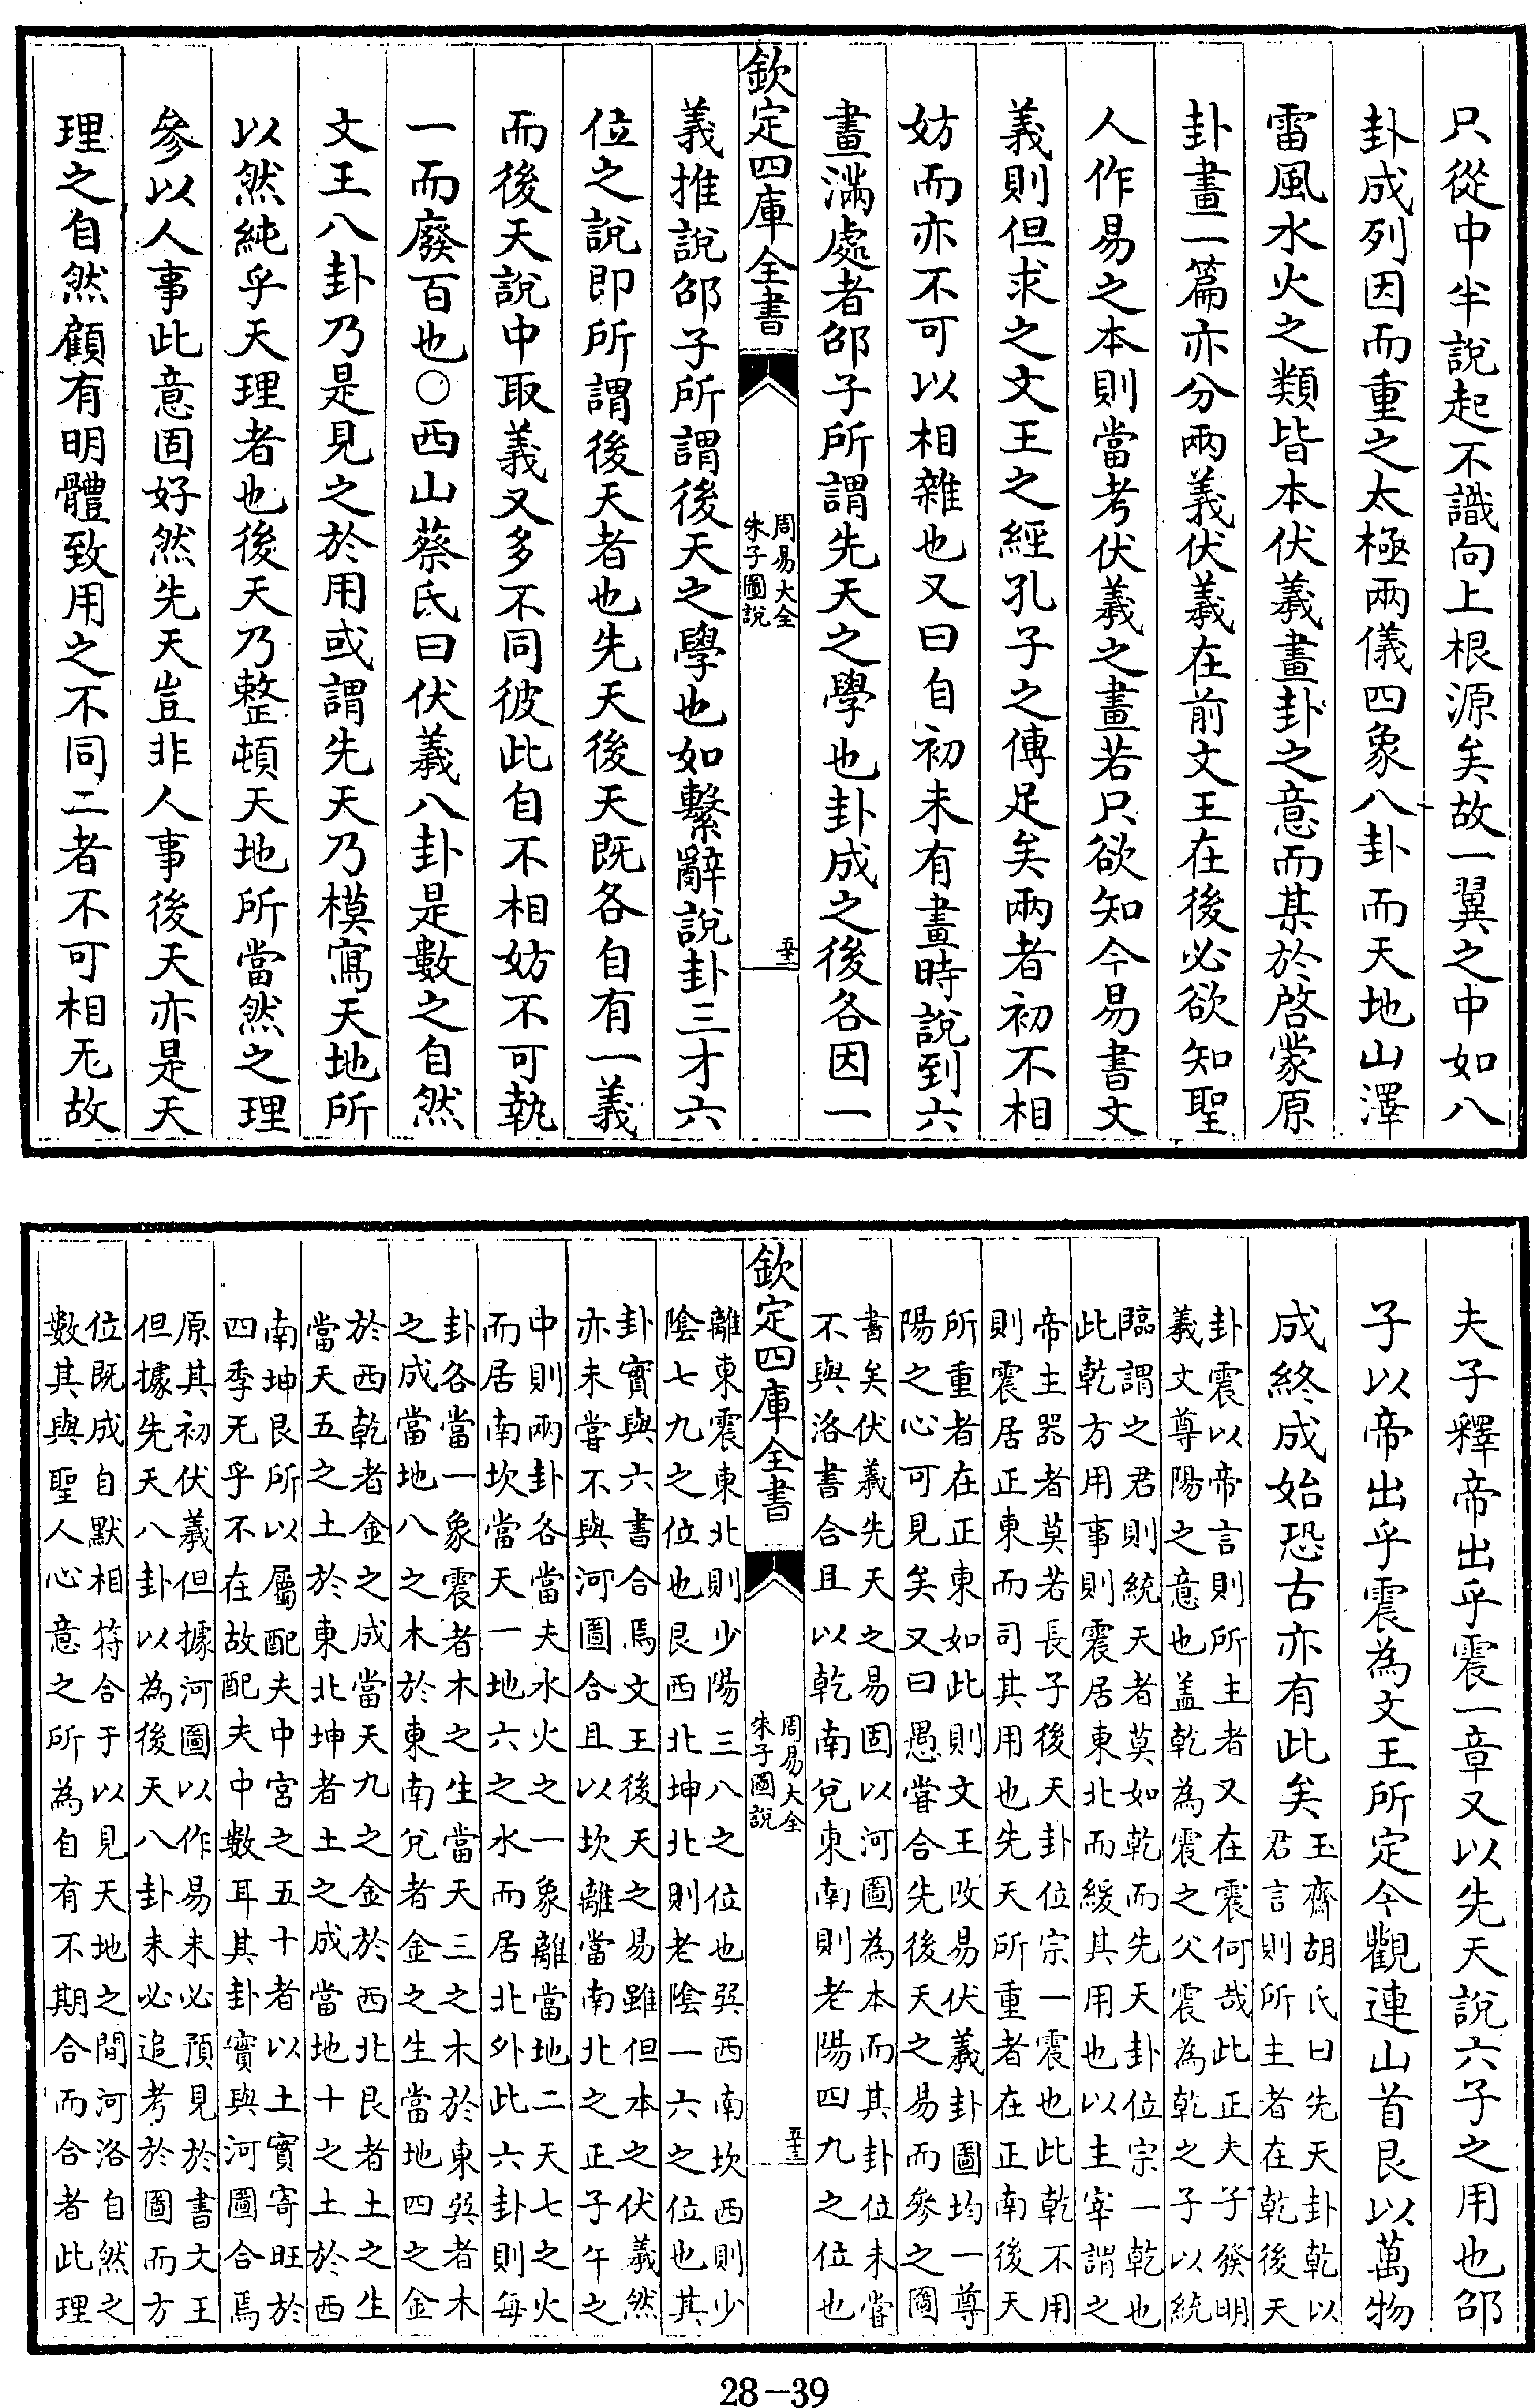 只從中半說起不識向上根源矣故一翼之中如八
卦成列因而重之太極兩儀四象八卦而天地山澤
雷風水火之類皆本伏羲畫卦之意而某於啓蒙原
卦畫一篇亦分兩義伏羲在前文王在後必欲知聖
人作易之本則當考伏羲之畫若只欲知今易書文
義則但求之文王之經孔子之傳足矣兩者初不相
妨而亦不可以相雜也又曰自初未有畫時說到六
畫滿處者邵子所謂先天之學也卦成之後各因一
欽定四庫全書
周易大全
朱子圖說
五十二
義推說邵子所謂後天之學也如繫辭說卦三才六
位之說即所謂後天者也先天後天既各自有一義
而後天說中取義又多不同彼此自不相妨不可執
一而廢百也○西山蔡氏曰伏羲八卦是數之自然
文王八卦乃是見之於用或謂先天乃模寫天地所
以然純乎天理者也後天乃整頓天地所當然之理
參以人事此意固好然先天豈非人事後天亦是天
理之自然顧有明體致用之不同二者不可相无故
夫子釋帝出乎震一章又以先天說六子之用也邵
子以帝出乎震為文王所定今觀連山首艮以萬物
成終成始恐古亦有此矣
玉齋胡氏曰先天卦乾以
君言則所主者在乾後天
卦震以帝言則所主者又在震何哉此正夫子發明
羲文尊陽之意也盖乾為震之父震為乾之子以統
臨謂之君則統天者莫如乾而先天卦位宗一乾也
此乾方用事則震居東北而緩其用也以主宰謂之
帝主器者莫若長子後天卦位宗一震也此乾不用
則震居正東而司其用也先天所重者在正南後天
所重者在正東如此則文王改易伏羲卦圖均一尊
陽之心可見矣又曰愚嘗合先後天之易而參之圖
書矣伏羲先天之易固以河圖為本而其卦位未嘗
不與洛書合且以乾南兌東南則老陽四九之位也
欽定四庫全書
周易大全
朱子圖說
五十三
離東震東北則少陽三八之位也巽西南坎西則少
陰七九之位也艮西北坤北則老陰一六之位也其
卦實與六書合焉文王後天之易雖但本之伏羲然
亦未嘗不與河圖合且以坎離當南北之正子午之
中則兩卦各當夫水火之一象離當地二天七之火
而居南坎當天一地六之水而居北外此六卦則每
卦各當一象震者木之生當天三之木於東巽者木
之成當地八之木於東南兌者金之生當地四之金
於西乾者金之成當天九之金於西北艮者土之生
當天五之土於東北坤者土之成當地十之土於西
南坤艮所以屬配夫中宮之五十者以土實寄旺於
四季无乎不在故配夫中數耳其卦實與河圖合焉
原其初伏羲但據河圖以作易未必預見於書文王
但據先天八卦以為後天八卦未必追考於圖而方
位既成自默相符合于以見天地之間河洛自然之
數其與聖人心意之所為自有不期合而合者此理
28-39